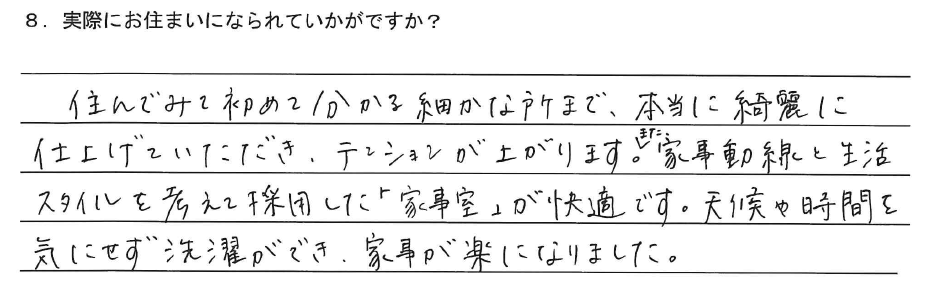 8．実際にお住まいになられていかがですか？
住んでみて初めて分かる細かな所まで、本当に綺麗に
仕上げていただき、テンションが上がります。また、家事動線と生活
スタイルを考えて採用した「家事室」が快適です。天候や時間を
気にせず洗濯ができ、家事が楽になりました。